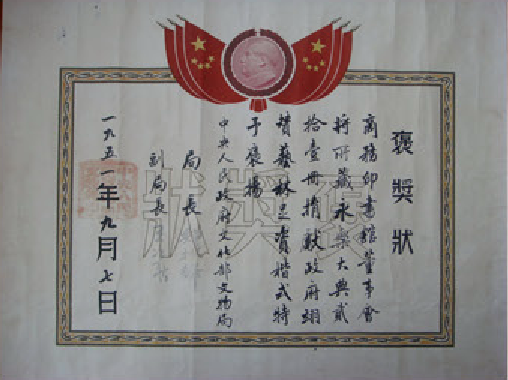 褒獎狀
商務印書館董事會
將所藏永樂大典貳
拾壹冊捐獻政府翊
贊藝林足資楷式特
予褒揚
中央人民政府文化部文物局
局長
副局長
一九五一年九月七日
褒獎狀